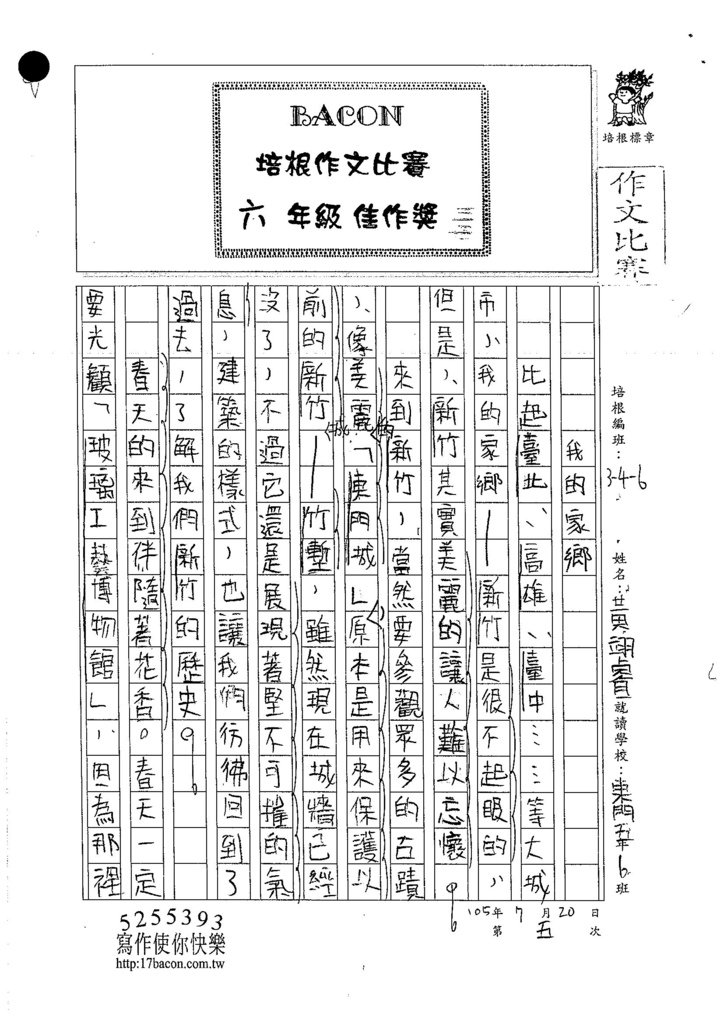 BACON
培根作文比賽
六 年級 佳作獎
培根標章
作文比賽
培根編班：3-4-6
姓名：黃翊睿 就讀學校：東門 五年 6 班
105年 7月 20日
第 五 次
我的家鄉
比起臺北、高雄、臺中……等大城
市，我的家鄉—新竹是很不起眼的，
但是，新竹其實美麗的讓人難以忘懷。
來到新竹，當然要參觀眾多的古蹟
，像美麗的「東門城」原本是用來保護以
前的新竹城—竹塹，雖然現在城牆已經
沒了，不過它還是展現著堅不可摧的氣
息，建築的樣式，也讓我們彷彿回到了
過去，了解我們新竹的歷史。
春天的來到伴隨著花香。春天一定
要光顧「玻璃工藝博物館」，因為那裡
5255393
寫作使你快樂
http:17bacon.com.tw